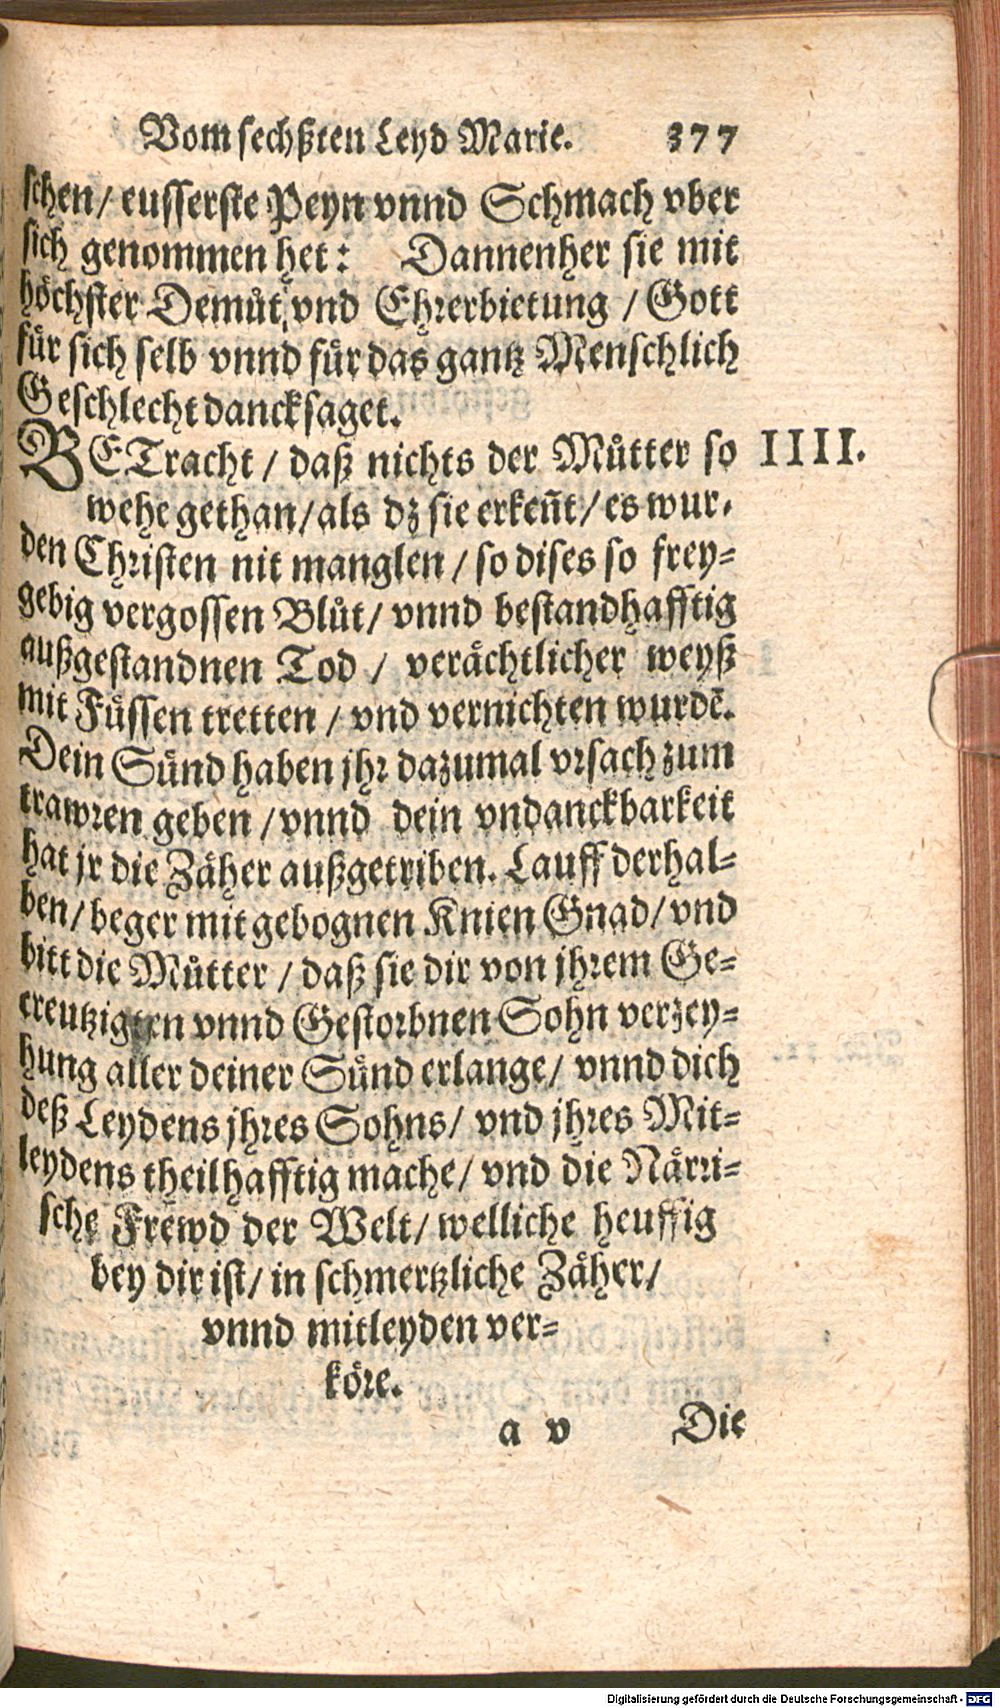 Vom sechßten Leyd Marie. 377
schen/ eusserste Peyn vnnd Schmach vber
sich genommen het: Dannenher sie mit
höchster Demůt vnd Ehrerbietung / Gott
für sich selb vnnd für das gantz Menschlich
Geschlecht dancksaget.
BETracht / daß nichts der Můtter so IIII.
wehe gethan/ als dz sie erkeñt/ es wur-
den Christen nit manglen / so dises so frey-
gebig vergossen Blůt/ vnnd bestandhafftig
außgestandnen Tod / verächtlicher weyß
mit Füssen tretten / vnd vernichten wurdẽ.
Dein Sünd haben jhr dazumal vrsach zum
trawren geben / vnnd dein vndanckbarkeit
hat jr die Zäher außgetriben. Lauff derhal-
ben/ beger mit gebognen Knien Gnad/ vnd
bitt die Můtter / daß sie dir von jhrem Ge-
creutzigten vnnd Gestorbnen Sohn verzey-
hung aller deiner Sünd erlange/ vnnd dich
deß Leydens jhres Sohns/ vnd jhres Mit-
leydens theilhafftig mache/ vnd die Närri-
sche Frewd der Welt/ welliche heuffig
bey dir ist/ in schmertzliche Zäher/
vnnd mitleyden ver-
köre.
a v Die
Digitalisierung gefördert durch die Deutsche Forschungsgemeinschaft - DFG